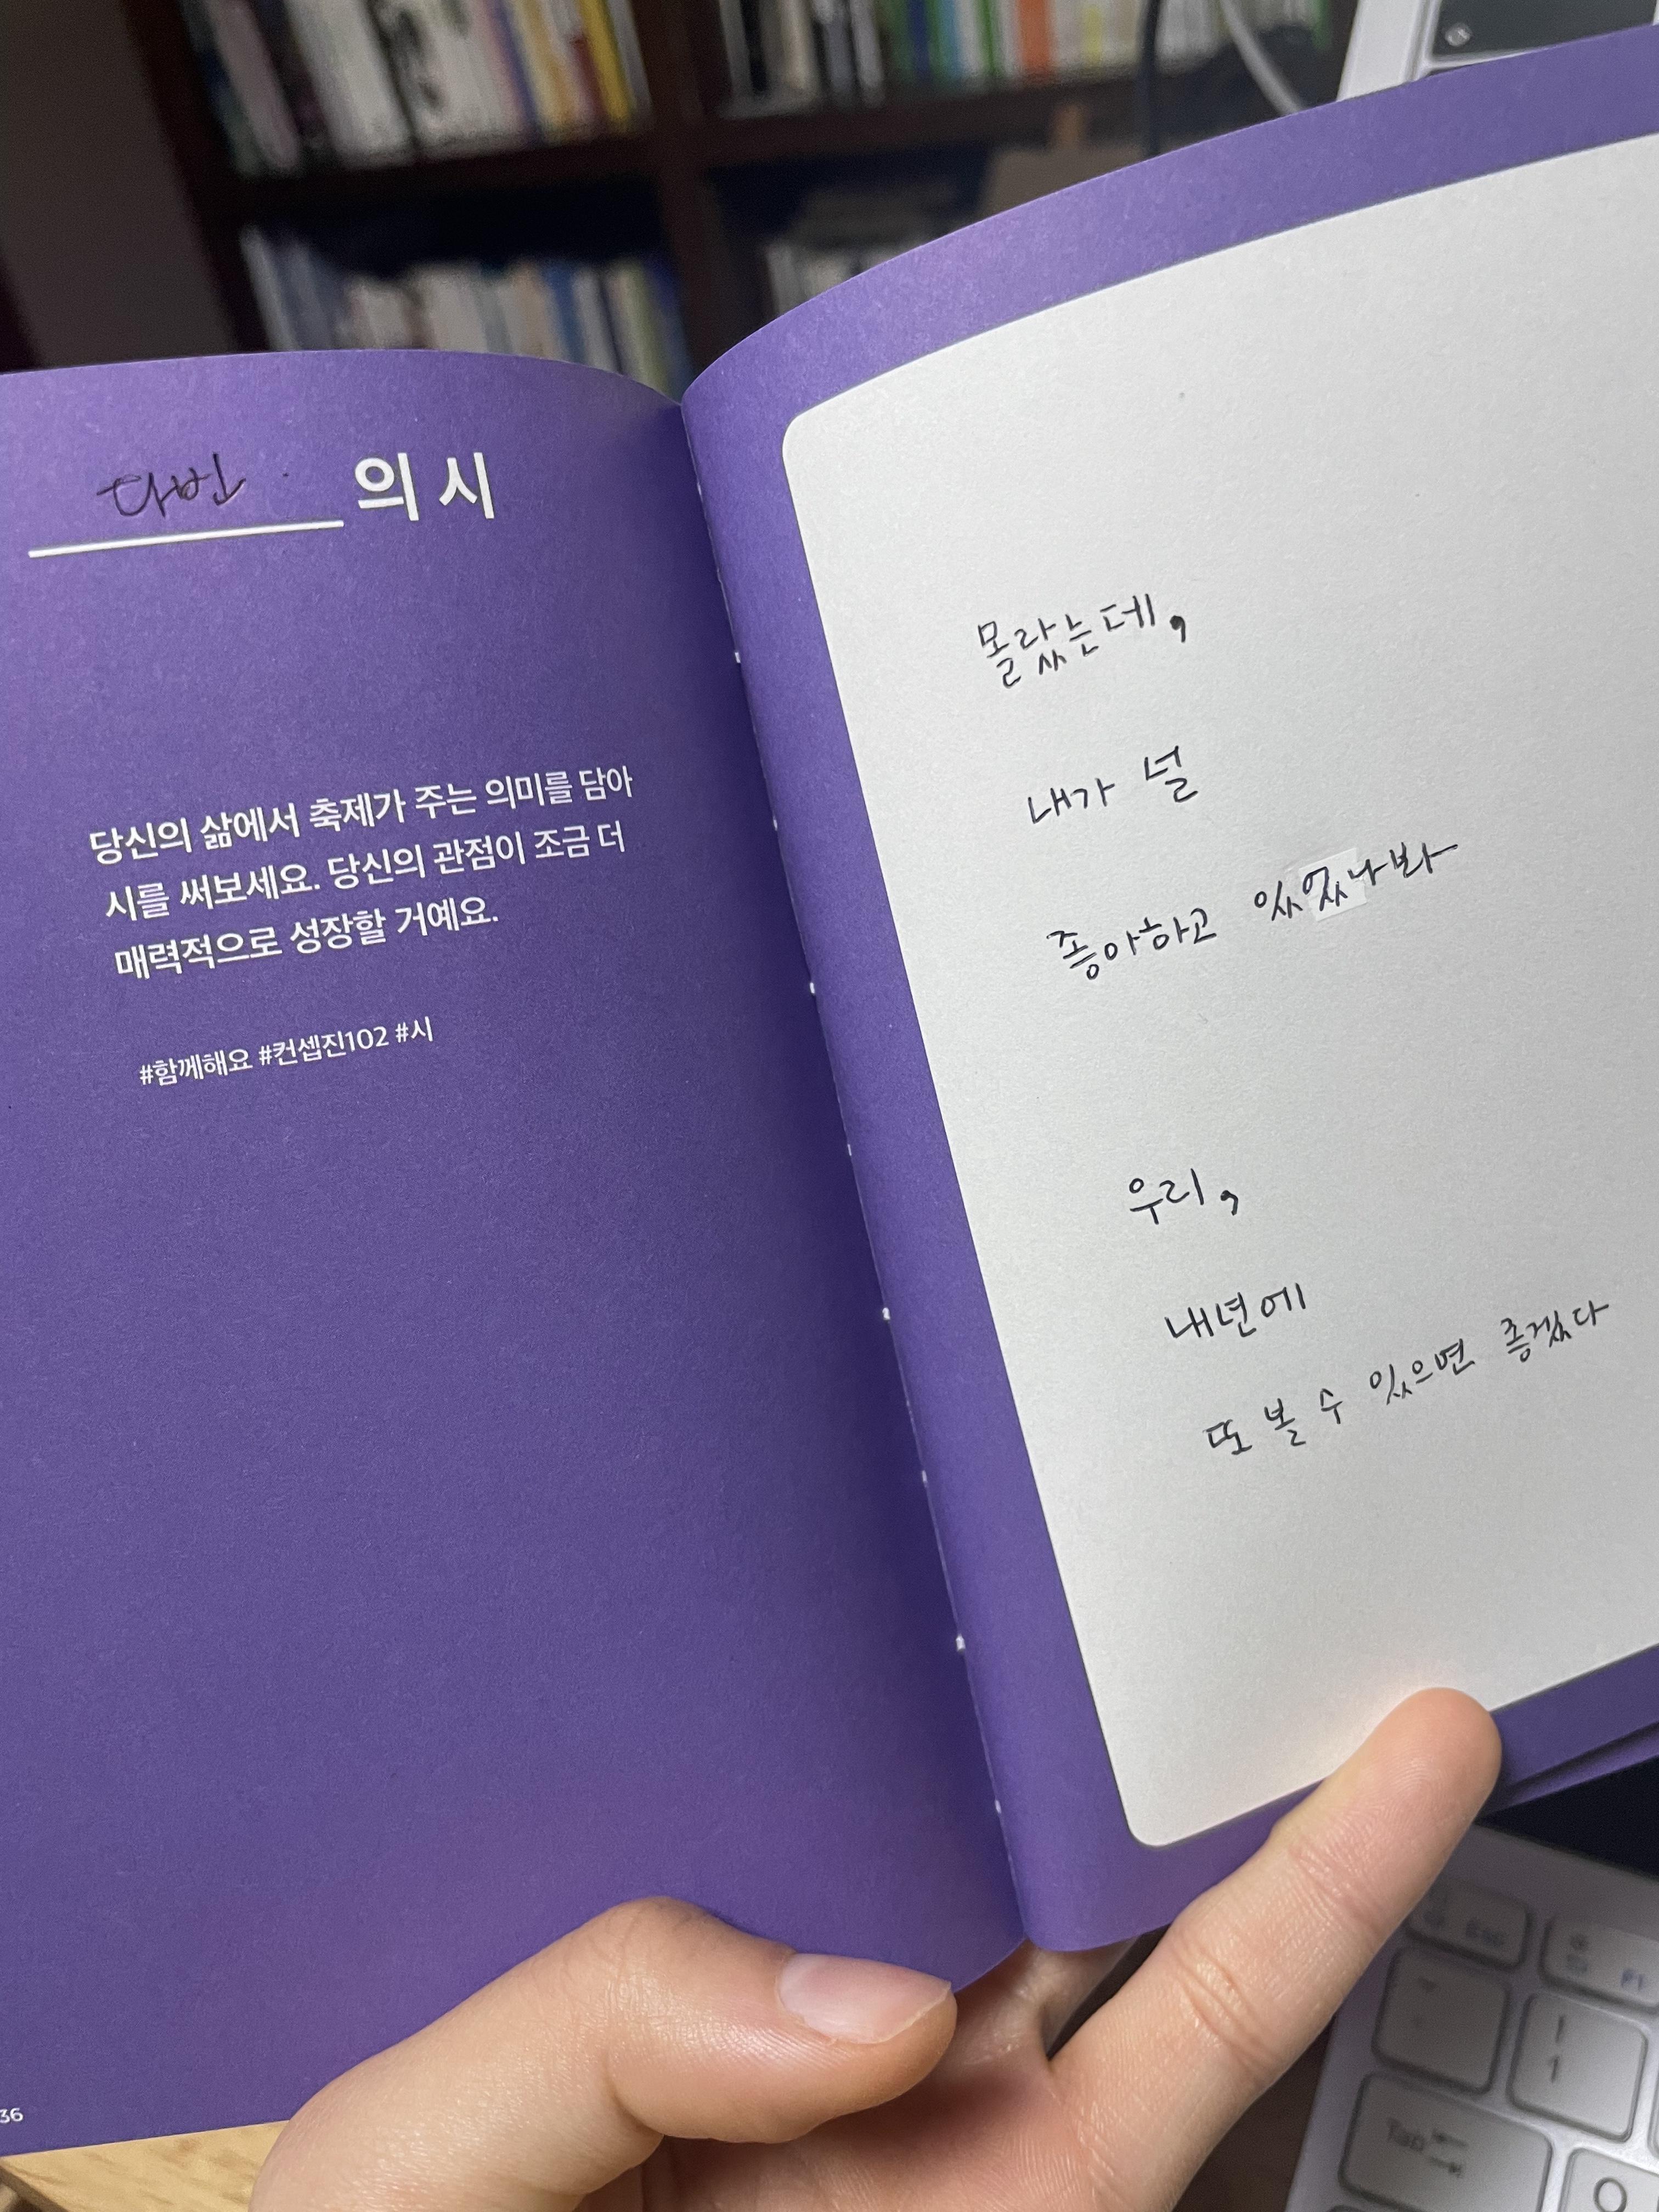 다빈 의 시
당신의 삶에서 축제가 주는 의미를 담아
시를 써보세요. 당신의 관점이 조금 더
매력적으로 성장할 거예요.
#함께해요 #컨셉진102 #시
36
몰랐는데,
내가 널
좋아하고 있었나봐
우리,
내년에
또 볼 수 있으면 좋겠다
esc
F1
!
1
Tab
Q